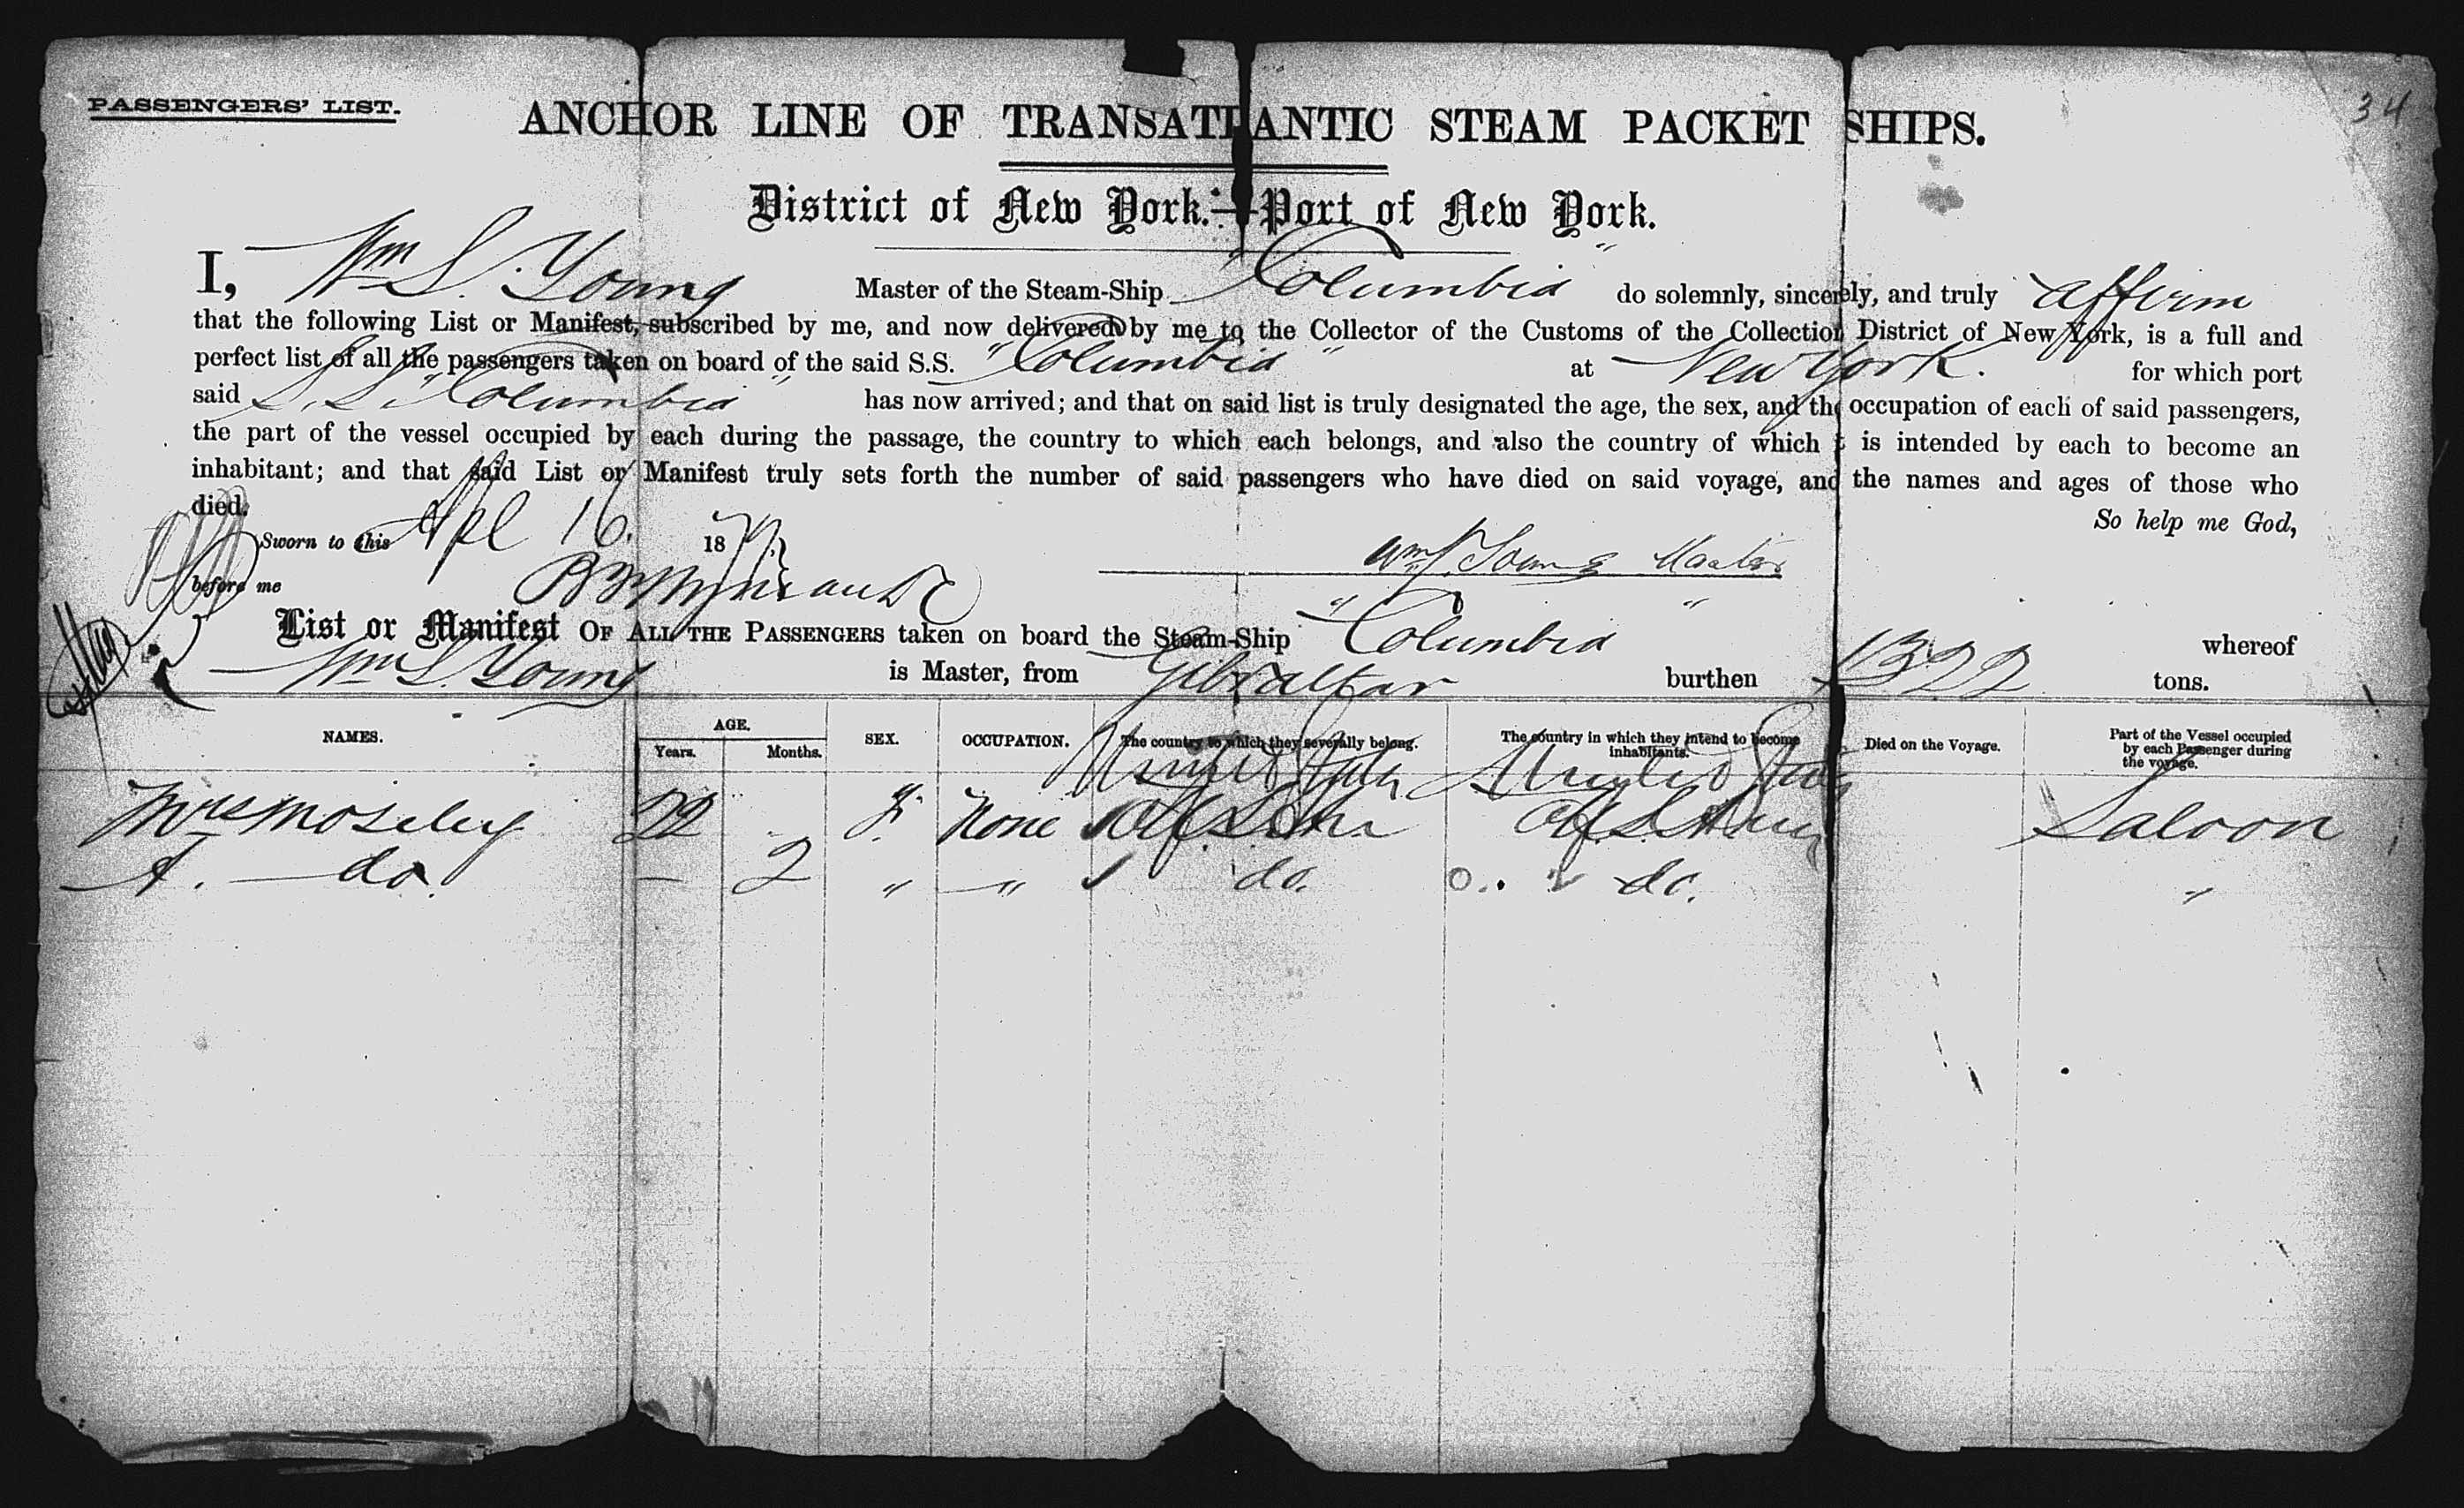 PASSENGERS' LIST.
34
ANCHOR LINE OF TRANSATLANTIC STEAM PACKET SHIPS.
District of New York.—Port of New York.
I, Wm S. Young Master of the Steam-Ship "Columbia" do solemnly, sincerely, and truly affirm
that the following List or Manifest, subscribed by me, and now delivered by me to the Collector of the Customs of the Collection District of New York, is a full and
perfect list of all the passengers taken on board of the said S.S. "Columbia" at New York. for which port
said S.S. "Columbia" has now arrived; and that on said list is truly designated the age, the sex, and the occupation of each of said passengers,
the part of the vessel occupied by each during the passage, the country to which each belongs, and also the country of which it is intended by each to become an
inhabitant; and that said List or Manifest truly sets forth the number of said passengers who have died on said voyage, and the names and ages of those who
died.
So help me God,
Sworn to this Apl 16. 187
Wm S. Young Master
before me
List or Manifest OF ALL THE PASSENGERS taken on board the Steam-Ship "Columbia" whereof
Wm S. Young is Master, from Gibraltar burthen 1322 tons.
NAMES. AGE. Years. Months. SEX. OCCUPATION. The country to which they severally belong. The country in which they intend to become inhabitants. Died on the Voyage. Part of the Vessel occupied by each Passenger during the voyage.
United United
Mrs Moseley 22 F. None Saloon
A. do. — 2 " " do. do. "